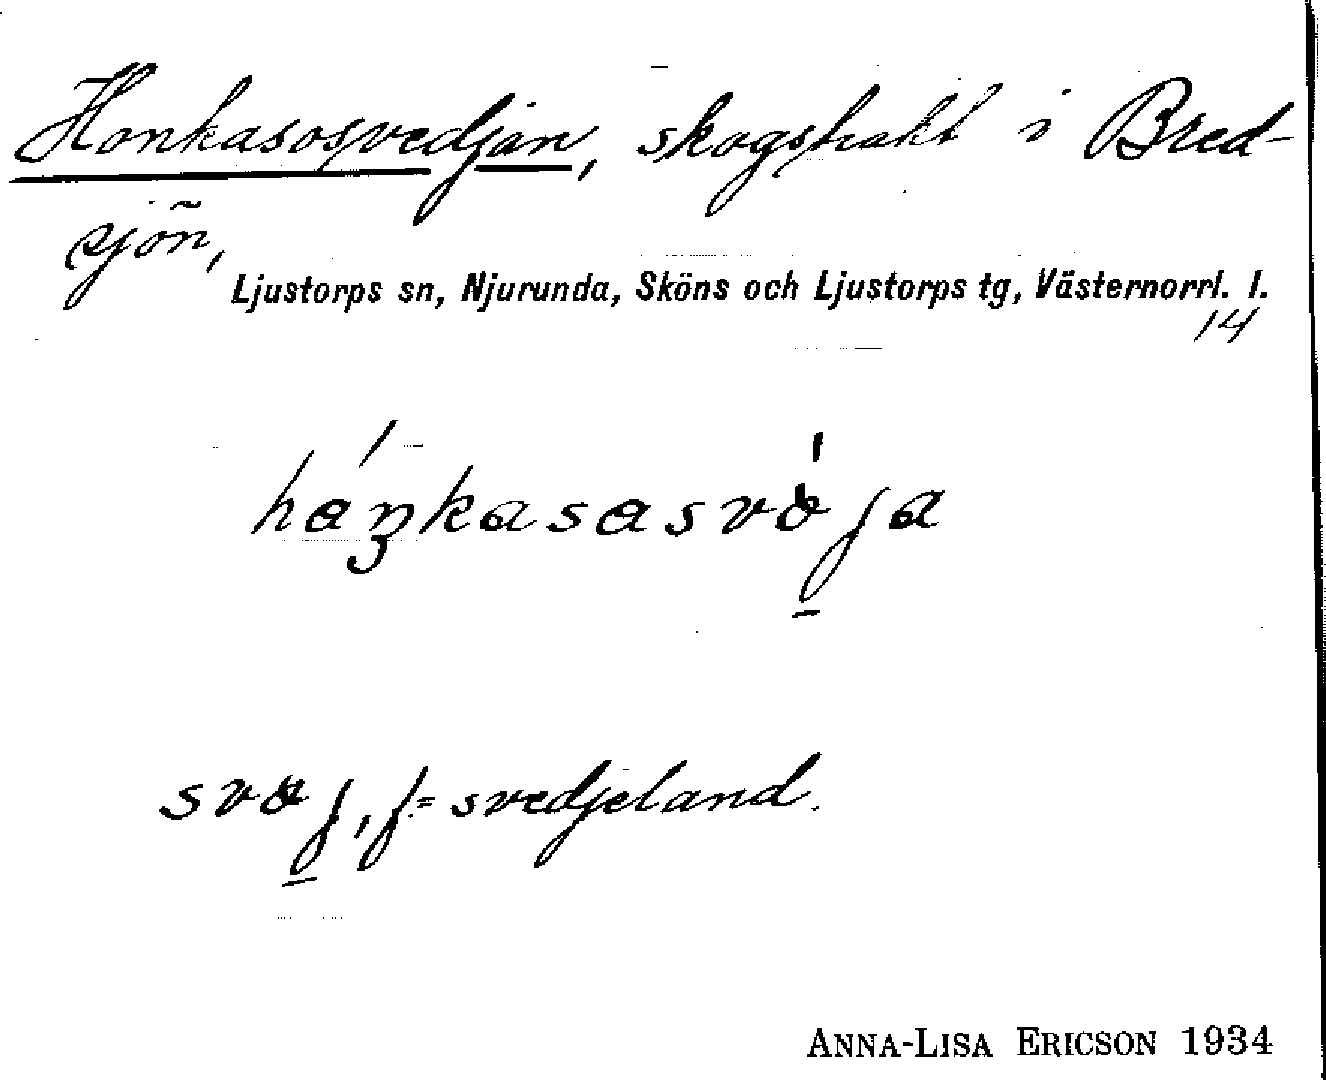 Honkasosvedjan, skogstrakt i Bred-
sjön,
Ljustorps sn, Njurunda, Sköns och Ljustorps tg, Västernorrl. l.
14
svaj, f. = svedjeland.
ANNA-LISA ERICSON 1934